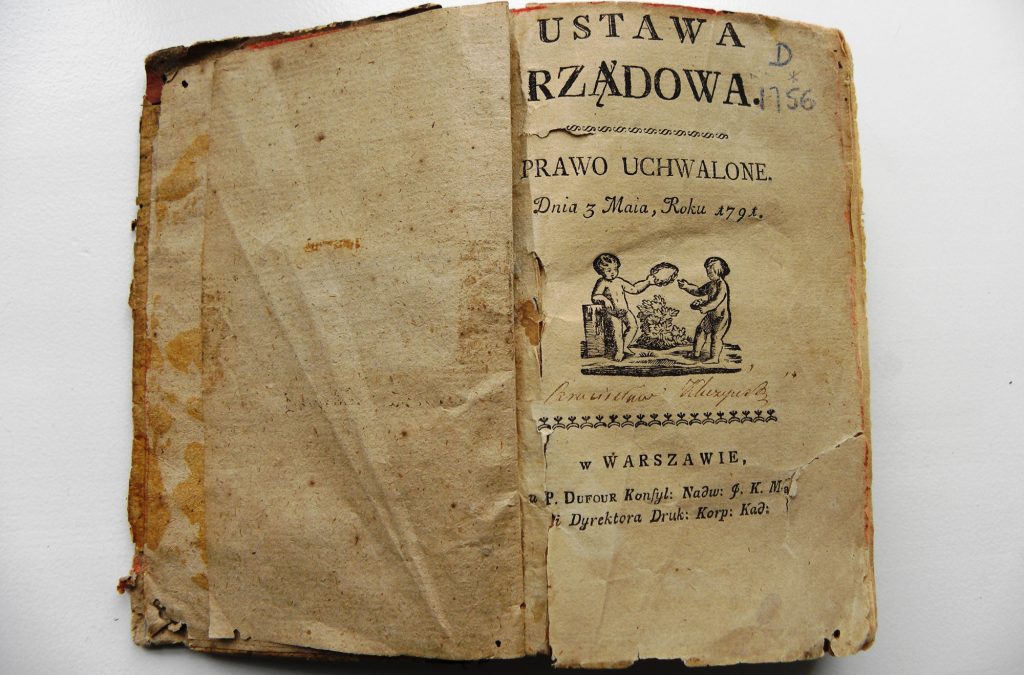 USTAWA
D
RZĄDOWA.
1756
PRAWO UCHWALONE.
Dnia 3 Maia, Roku 1791.
w WARSZAWIE,
u P. DUFOUR Konsyl: Nadw: J. K. M
i Dyrektora Druk: Korp: Kad: